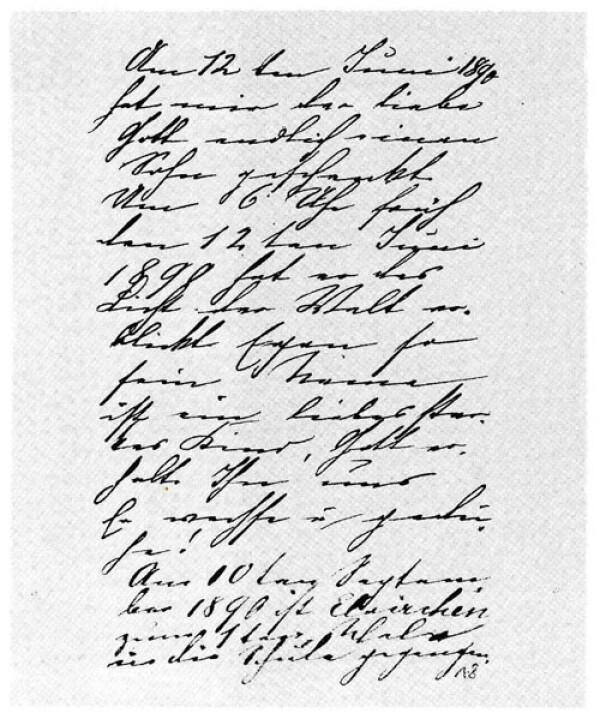 Am 12 ten Juni 1890
hat mir der liebe
Gott endlich einen
Sohn geschenkt
Um 6 Uhr früh
den 12 ten Juni
1890 hat er das
Licht der Welt er-
blickt Egon so
sein Name
ist ein liebes star-
kes Kind, Gott er-
halte Ihn uns
Er wachse u gedei-
he!
Am 10 ten Septem
ber 1890 ist Elvirchen
zum 1 ten Male
in die Schule gegangen.